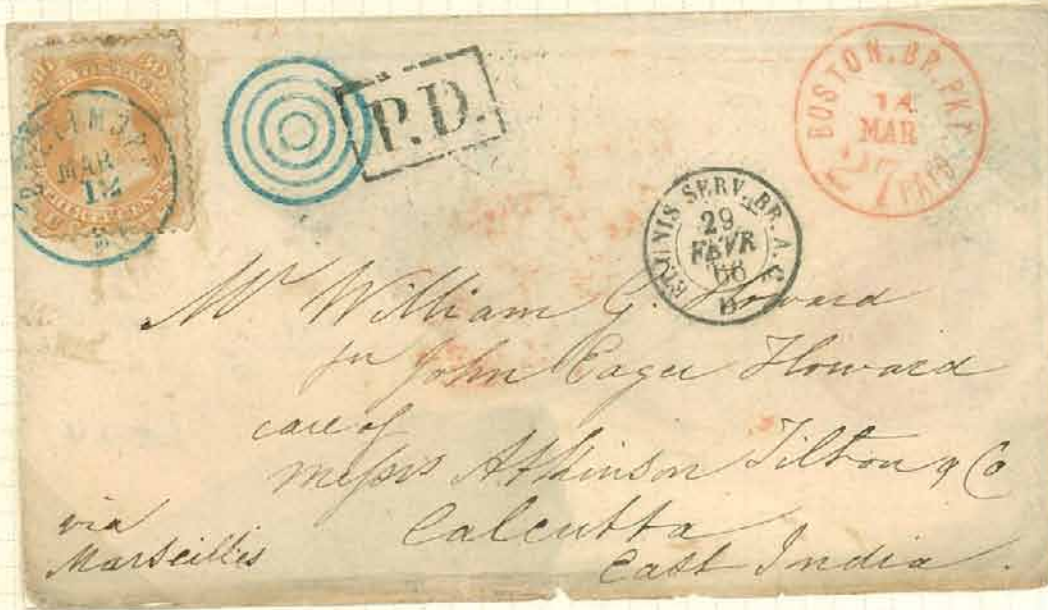 BALTIMORE MD
MAR
12
P.D.
BOSTON. BR. PKT.
14
MAR
27
PAID
ETUNIS SERV. BR. A.C.
29
FEVR
66
D
Mr William G. Howard
for John Eager Howard
care of
Messrs Atkinson Tilton & Co
Calcutta
East India.
via
Marseilles